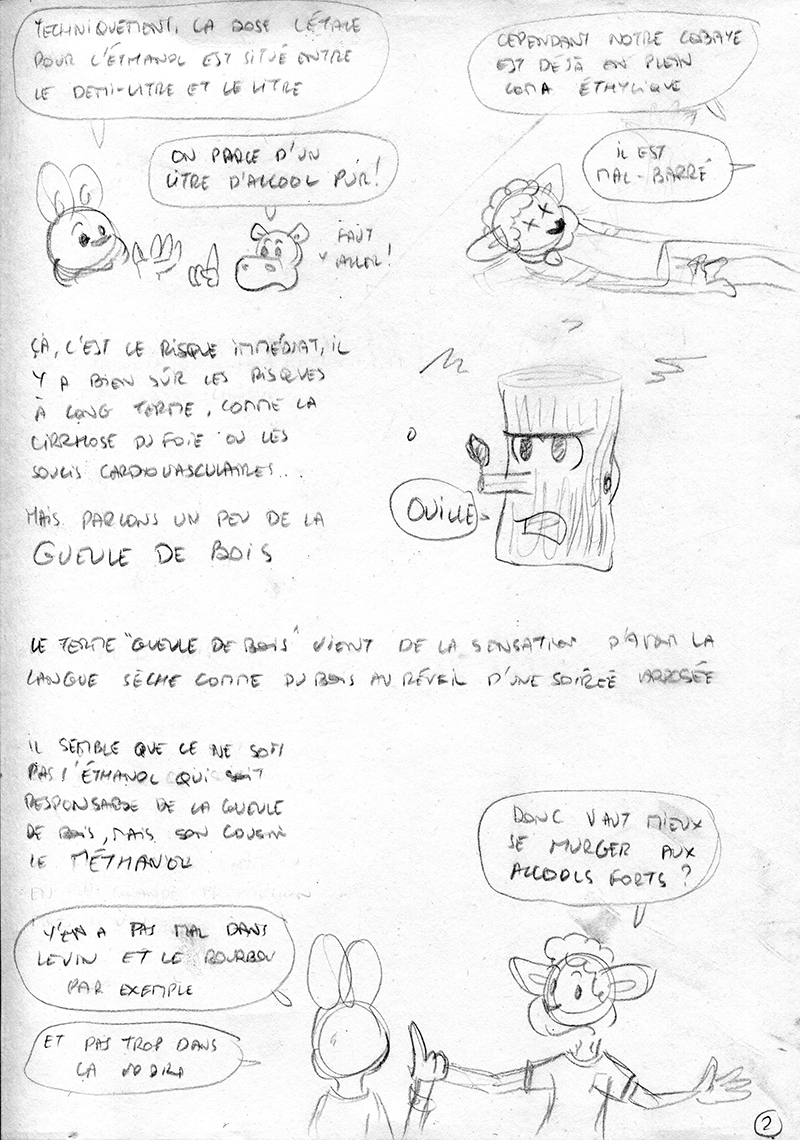 TECHNIQUEMENT, LA DOSE LÉTALE
POUR L'ÉTHANOL EST SITUÉ ENTRE
LE DEMI-LITRE ET LE LITRE
ON PARLE D'UN
LITRE D'ALCOOL PUR!
FAUT
Y ALLER!
CEPENDANT NOTRE COBAYE
EST DÉJÀ EN PLEIN
COMA ÉTHYLIQUE
IL EST
MAL-BARRÉ
ÇA, C'EST LE RISQUE IMMÉDIAT, IL
Y A BIEN SÛR LES RISQUES
À LONG TERME, COMME LA
CIRRHOSE DU FOIE OU LES
SOUCIS CARDIOVASCULAIRES...
MAIS PARLONS UN PEU DE LA
GUEULE DE BOIS
OUILLE
LE TERME "GUEULE DE BOIS" VIENT DE LA SENSATION D'AVOIR LA
LANGUE SÈCHE COMME DU BOIS AU RÉVEIL D'UNE SOIRÉE ARROSÉE
IL SEMBLE QUE CE NE SOIT
PAS L'ÉTHANOL QUI SOIT
RESPONSABLE DE LA GUEULE
DE BOIS, MAIS SON COUSIN
LE MÉTHANOL
DONC VAUT MIEUX
SE MURGER AUX
ALCOOLS FORTS?
Y'EN A PAS MAL DANS
LE VIN ET LE BOURBON
PAR EXEMPLE
ET PAS TROP DANS
LA VODKA
2